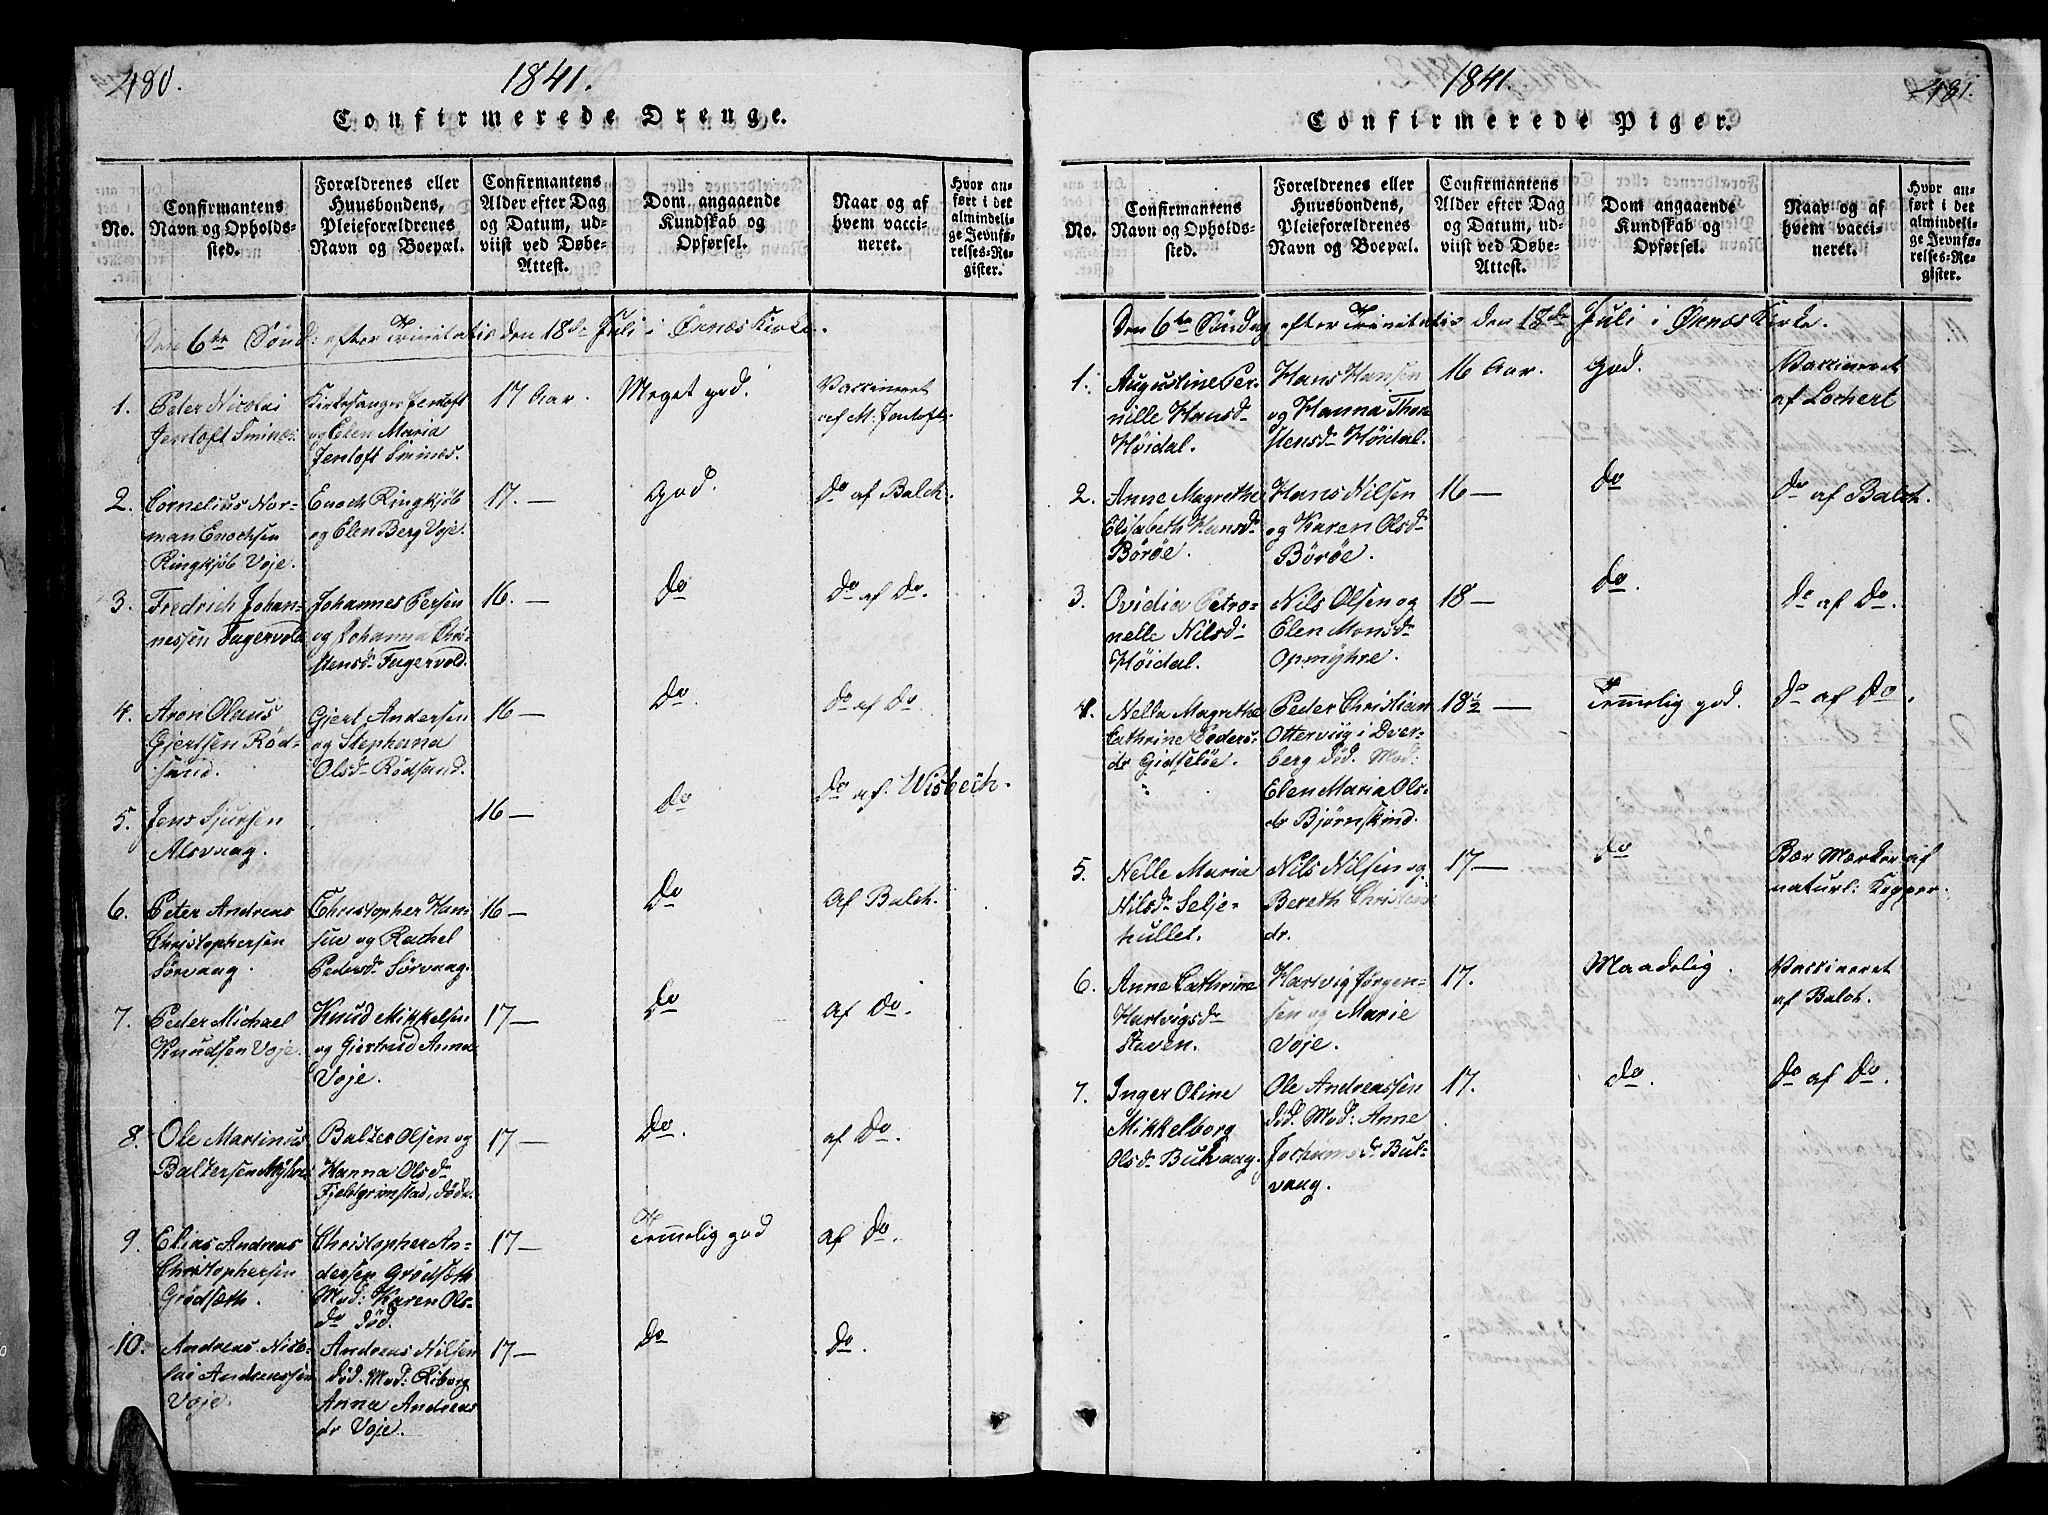 480.
1841.
Confirmerede Drenge.
No.
Confirmantens
Navn og Opholds-
sted.
Forældrenes eller
Huusbondens,
Pleieforældrenes
Navn og Boepæl.
Confirmantens
Alder efter Dag
og Datum, ud-
viist ved Døbe-
Attest.
Dom angaaende
Kundskab og
Opførsel.
Naar og af
hvem vacci-
neret.
Hvor an-
ført i det
almindeli-
ge Jevnfø-
relses-Re-
gister.
Den 6te Sönd: efter Trinitatis den 18de Juli i Örnæs Kirke.
1.
Peter Nicolai
Jentoft Smines.
Kirkesanger Jentoft
og Elen Maria
Jentoft Smines.
17 Aar.
Meget god.
Vaccineret
af M: Jentoft.
2.
Cornelius Nor-
man Enochsen
Ringkjöb Voje.
Enoch Ringkjöb
og Elen Berg Voje.
17. —
God.
Do af Balch.
3.
Fredrich Johan-
nessen Fagervold
Johannes Persen
og Johanna Chri-
stensdr Fagervold.
16. —
Do
Do af Do.
4.
Aron Olaus
Gjertsen Rød-
sand.
Gjert Andersen
og Stephana
Olsdr Rödsand.
16 —
Do.
Do af Do
5.
Jens Sjursen
Alsvaag.
16 —
Do
Do af Wisbech.
6.
Peter Andreas
Christophersen
Sørvaag.
Christopher Han-
sen og Rachel
Pedersdr Sørvaag.
16 —
Do
Af Balch.
7.
Peder Michael
Knudsen Voje.
Knud Mikkelsen
og Gjertrud Anna
Voje.
17 —
Do
Af Do.
8.
Ole Martinus
Baltzersen Myhre
Baltzer Olsen og
Hanna Olsdr
Fjeldgrimstad, døde.
17 —
Do.
af Do.
9.
Elias Andreas
Christophersen
Grødsæth.
Christopher An-
dersen Grødsæth
Mod: Karen Ols-
dr død.
17 —
Temmelig god
af Do.
10.
Andreas Nico-
lai Andreassen
Voje.
Andreas Nilsen
død. Mod: Riborg
Anna Andreas
dr Voje.
17 —
Do
Do.
1841.
481.
Confirmerede Piger.
No.
Confirmantens
Navn og Opholds-
sted.
Forældrenes eller
Huusbondens,
Pleieforældrenes
Navn og Boepæl.
Confirmantens
Alder efter Dag
og Datum, ud-
viist ved Døbe-
Attest.
Dom angaaende
Kundskab og
Opførsel.
Naar og af
hvem vacci-
neret.
Hvor an-
ført i det
almindeli-
ge Jevnfø-
relses-Re-
gister.
Den 6te Söndag efter Trinitatis den 18de Juli i Örnæs Kirke.
1.
Augustine Per-
nille Hansdr
Höidal.
Hans Hansen
og Hanna Thor-
stensdr Höidal.
16 Aar.
God.
Vaccineret
af Lochert
2.
Anne Magrethe
Elisabeth Hansdr
Börøe.
Hans Nilsen
og Karen Olsdr
Börøe.
16 —
Do
Do af Balch.
3.
Ovidia Petro-
nelle Nilsdr
Höidal.
Nils Olsen og
Elen Monsdr
Opmyhre.
18 —
Do
Do af Do.
4.
Nella Magrethe
Cathrine Peders-
dr Gidsløe.
Peder Christian
Otterviig i Dver-
berg död. Mod:
Elen Maria Ols-
dr Bjørnskind.
18 1/2 —
Temmelig god.
Do af Do.
5.
Nelle Maria
Nilsdr Selje-
hullet.
Nils Nilsen og
Bereth Christens
dr.
17 —
Do
Bær Mærker af
naturl: Kopper.
6.
Anne Cathrine
Hartvigsdr
Staven.
Hartvig Jørgen-
sen og Marie
Voje.
17.
Maadelig.
Vaccineret
af Balch.
7.
Inger Oline
Mikkelborg
Olsdr Bukvaag.
Ole Andreassen
död. Mod: Anne
Jochumsdr Buk-
vaag.
17.
do.
Do af Do.